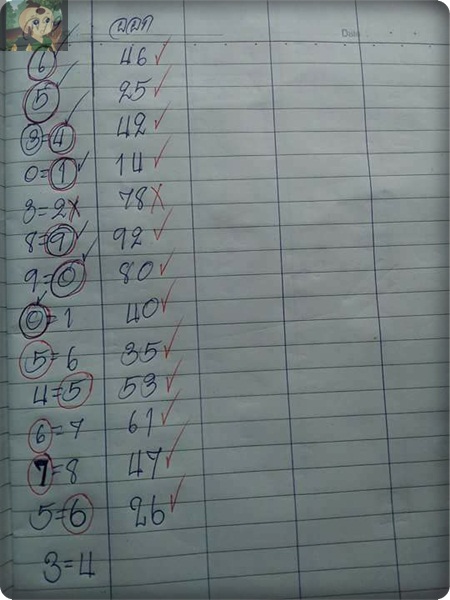 ออก
Date
6 46 ✓
5 25 ✓
3=4 42 ✓
0=1 14 ✓
3=2x 78 x
8=9 92 ✓
9=0 80 ✓
0=1 40 ✓
5=6 35 ✓
4=5 53 ✓
6=7 61 ✓
7=8 47 ✓
5=6 26 ✓
3=4